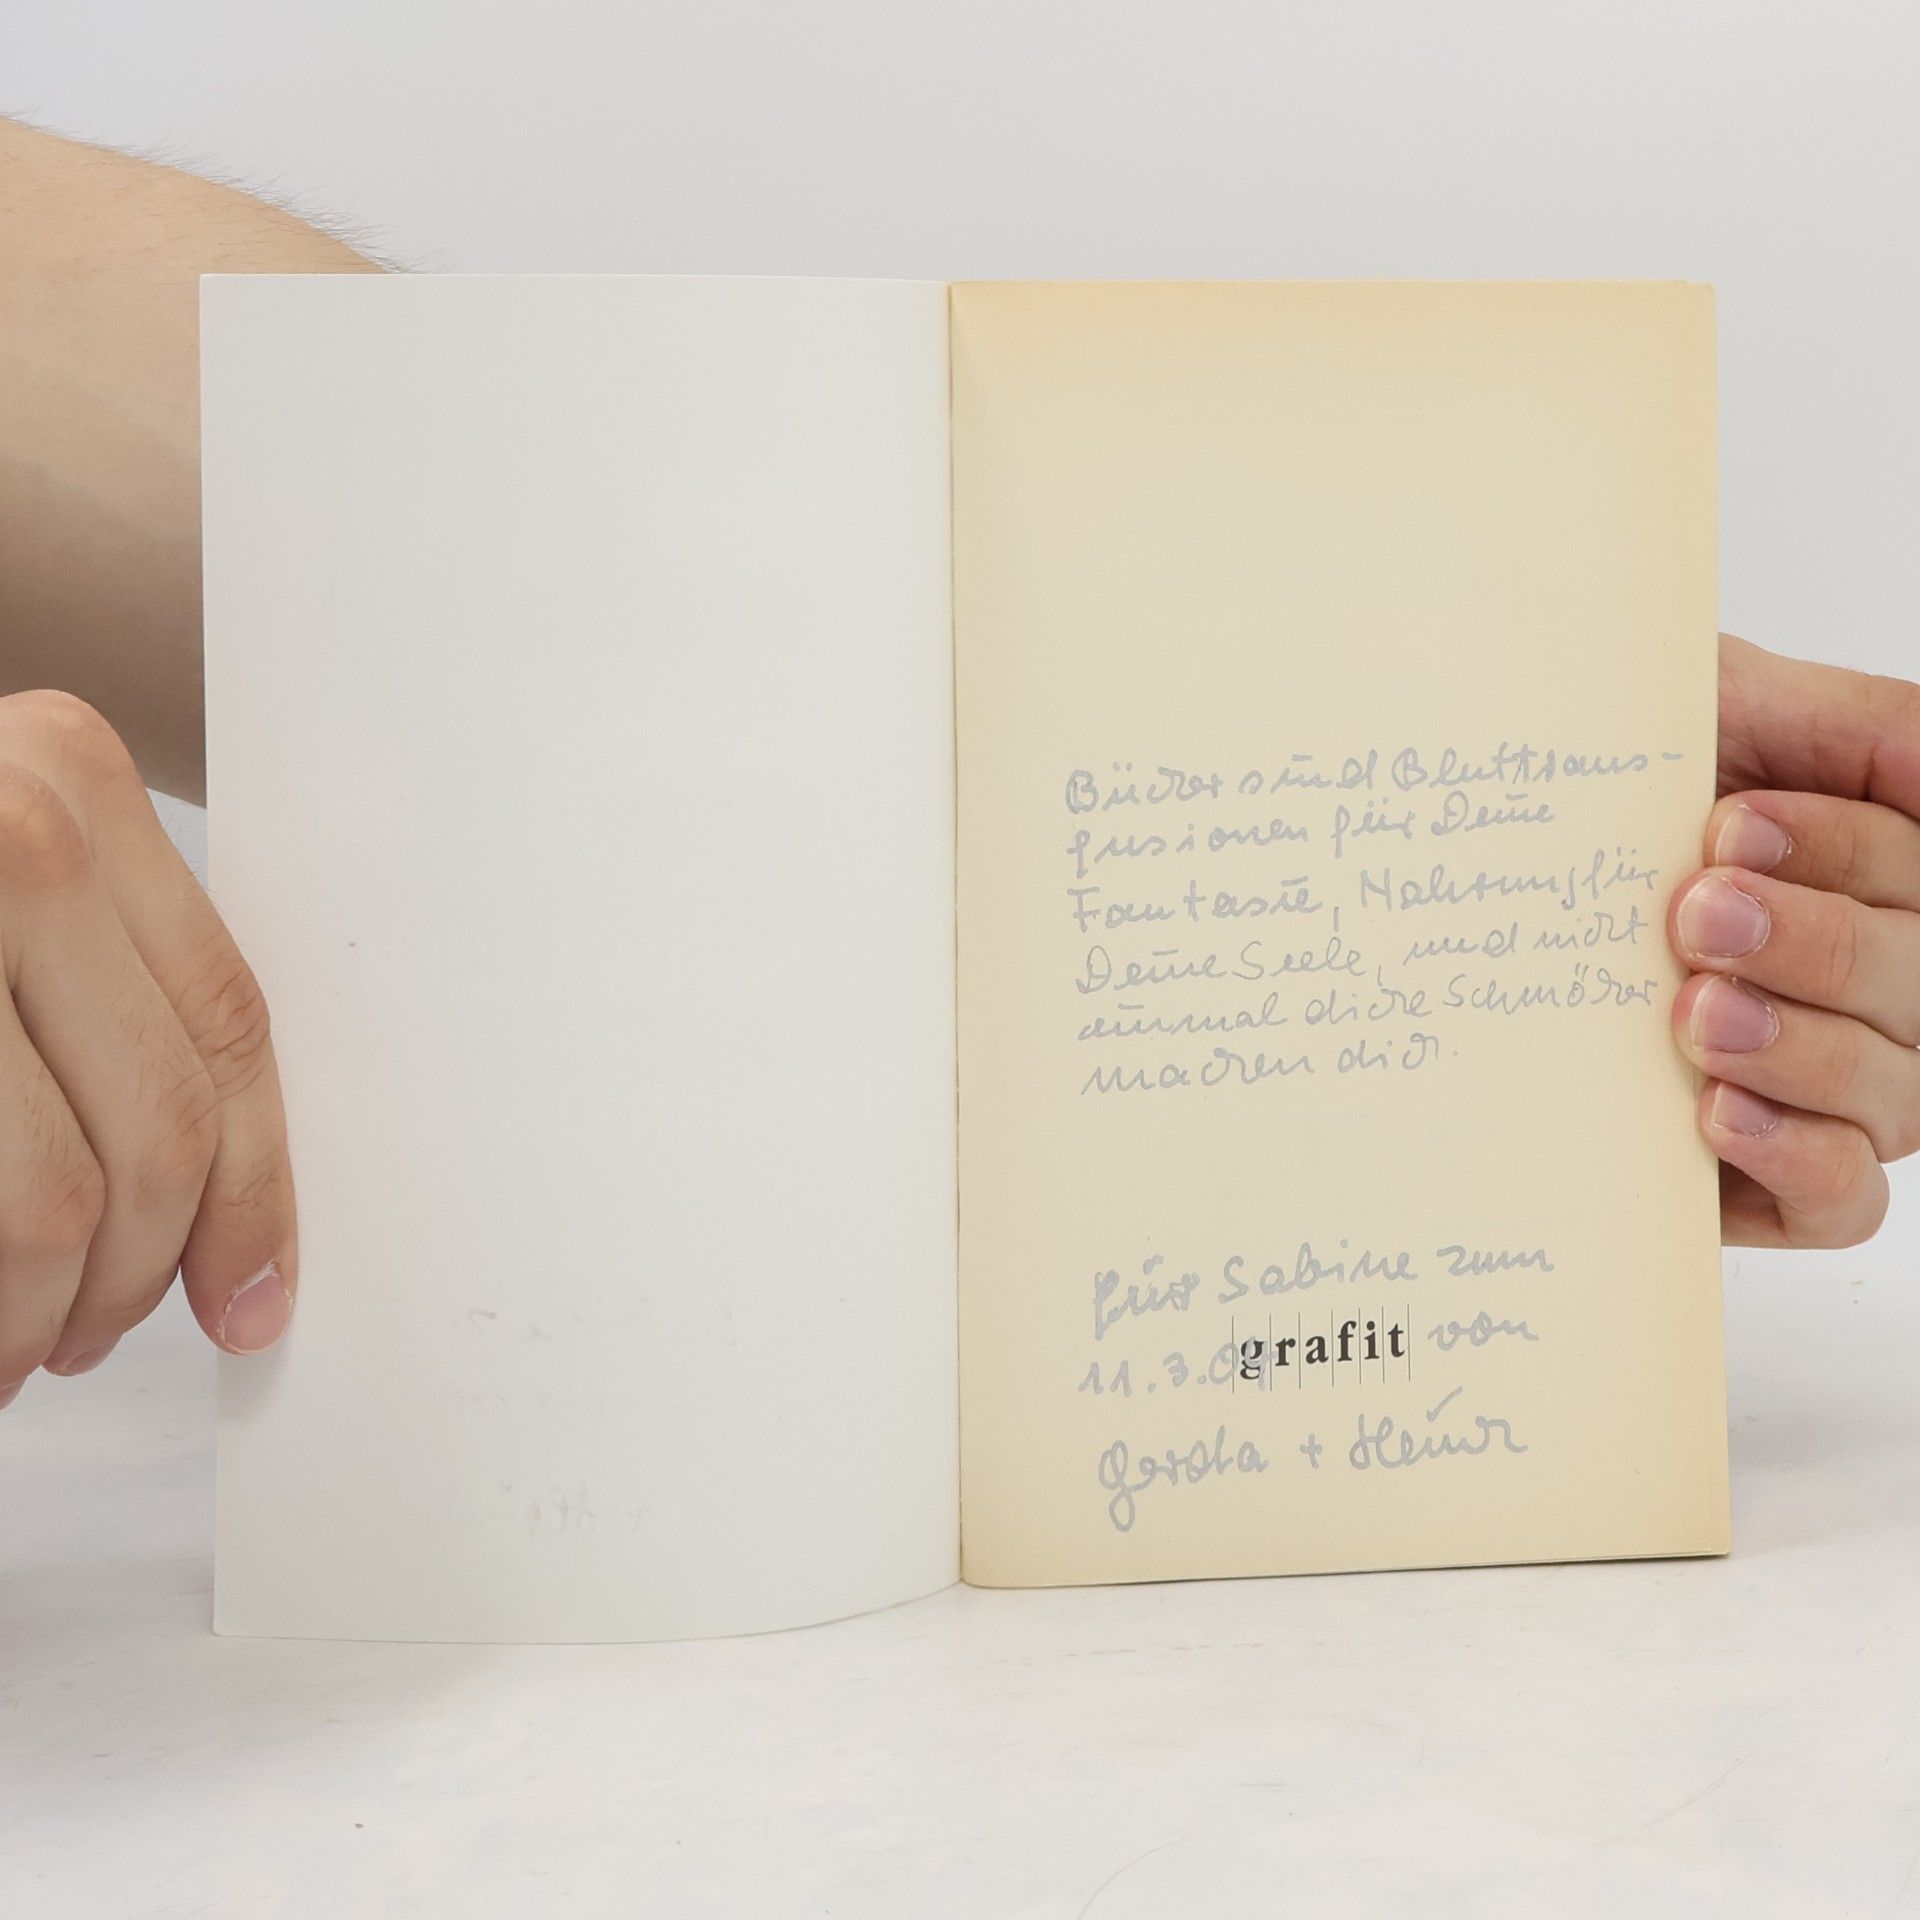 Bücher sind Bluttrans-
fusionen für Deine
Fantasie, Nahrung für
Deine Seele, und nicht
einmal dicke Schmöker
machen dick.
für Sabine zum
11.3.04 von
grafit
Gerda + Heinz